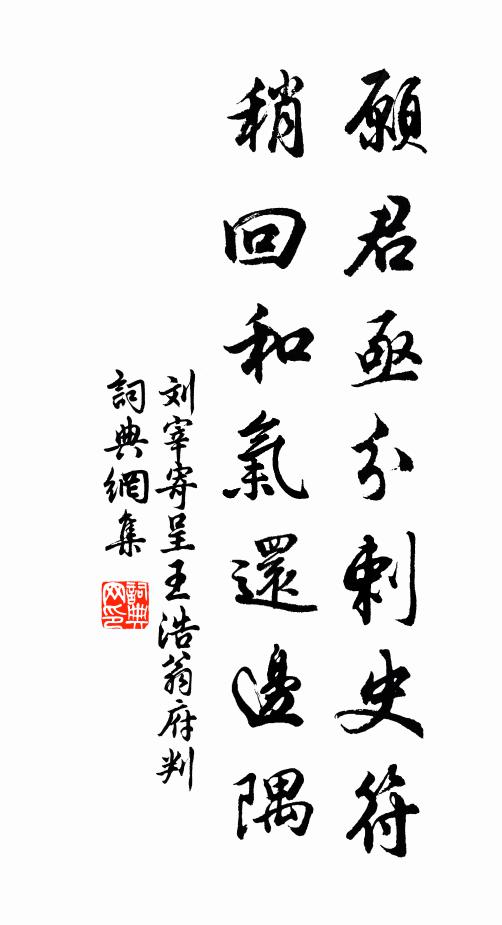 願君亟分刺史符
稍回和氣還邊隅
刘宰寄呈王浩翁府判
詞典網集
詞典网印